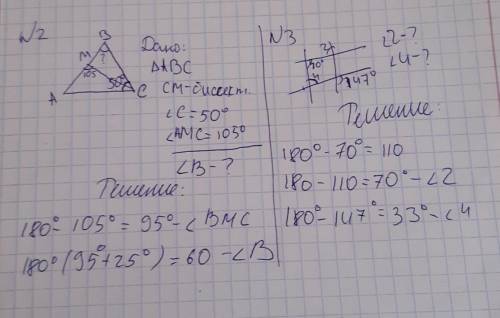 N2
B
?
M
105
50°
A
C
Дано:
ΔABC
CM-бисект.
∠C=50°
∠AMC=105°
∠B-?
Решение:
180°-105°=95°-∠BMC
180°(95°+25°)=60-∠B
N3
147°
∠2-?
∠4-?
Решение:
180°-70°=110
180-110=70°-∠2
180°-147°=33°-∠4